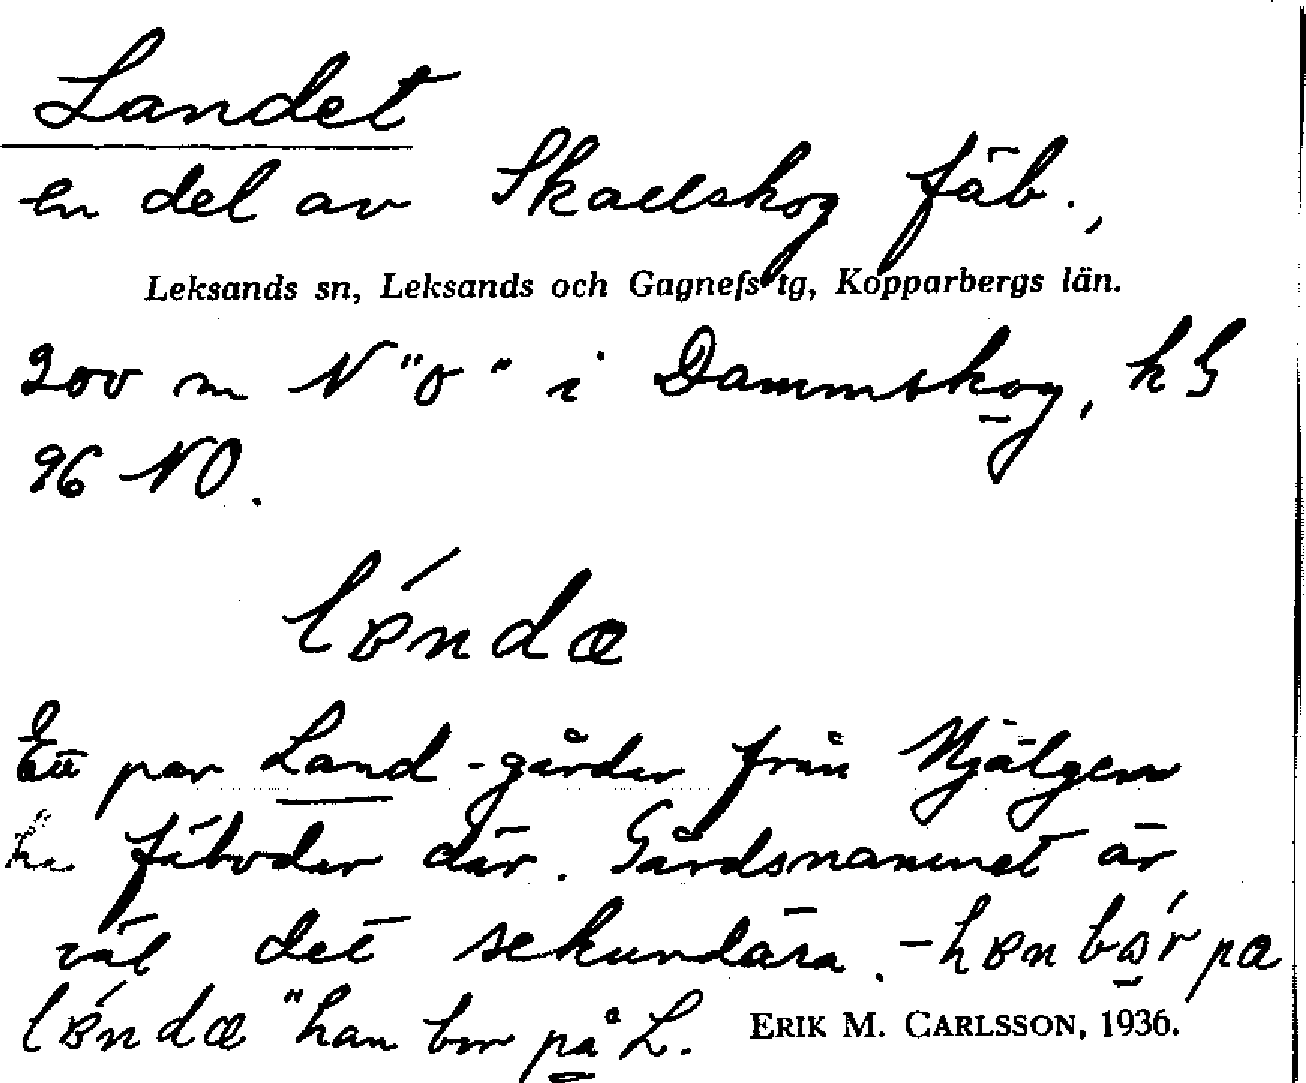 Landet
en del av Skallskog fäb.,
Leksands sn, Leksands och Gagnefs tg, Kopparbergs län.
200 m N "o" i Dammskog, kG
96 NO.
Ett par Land-gårdar från Hjälgen
ha fäboder där. Gårdsnamnet är
väl det sekundära. -
"han bor på L.
ERIK M. CARLSSON, 1936.